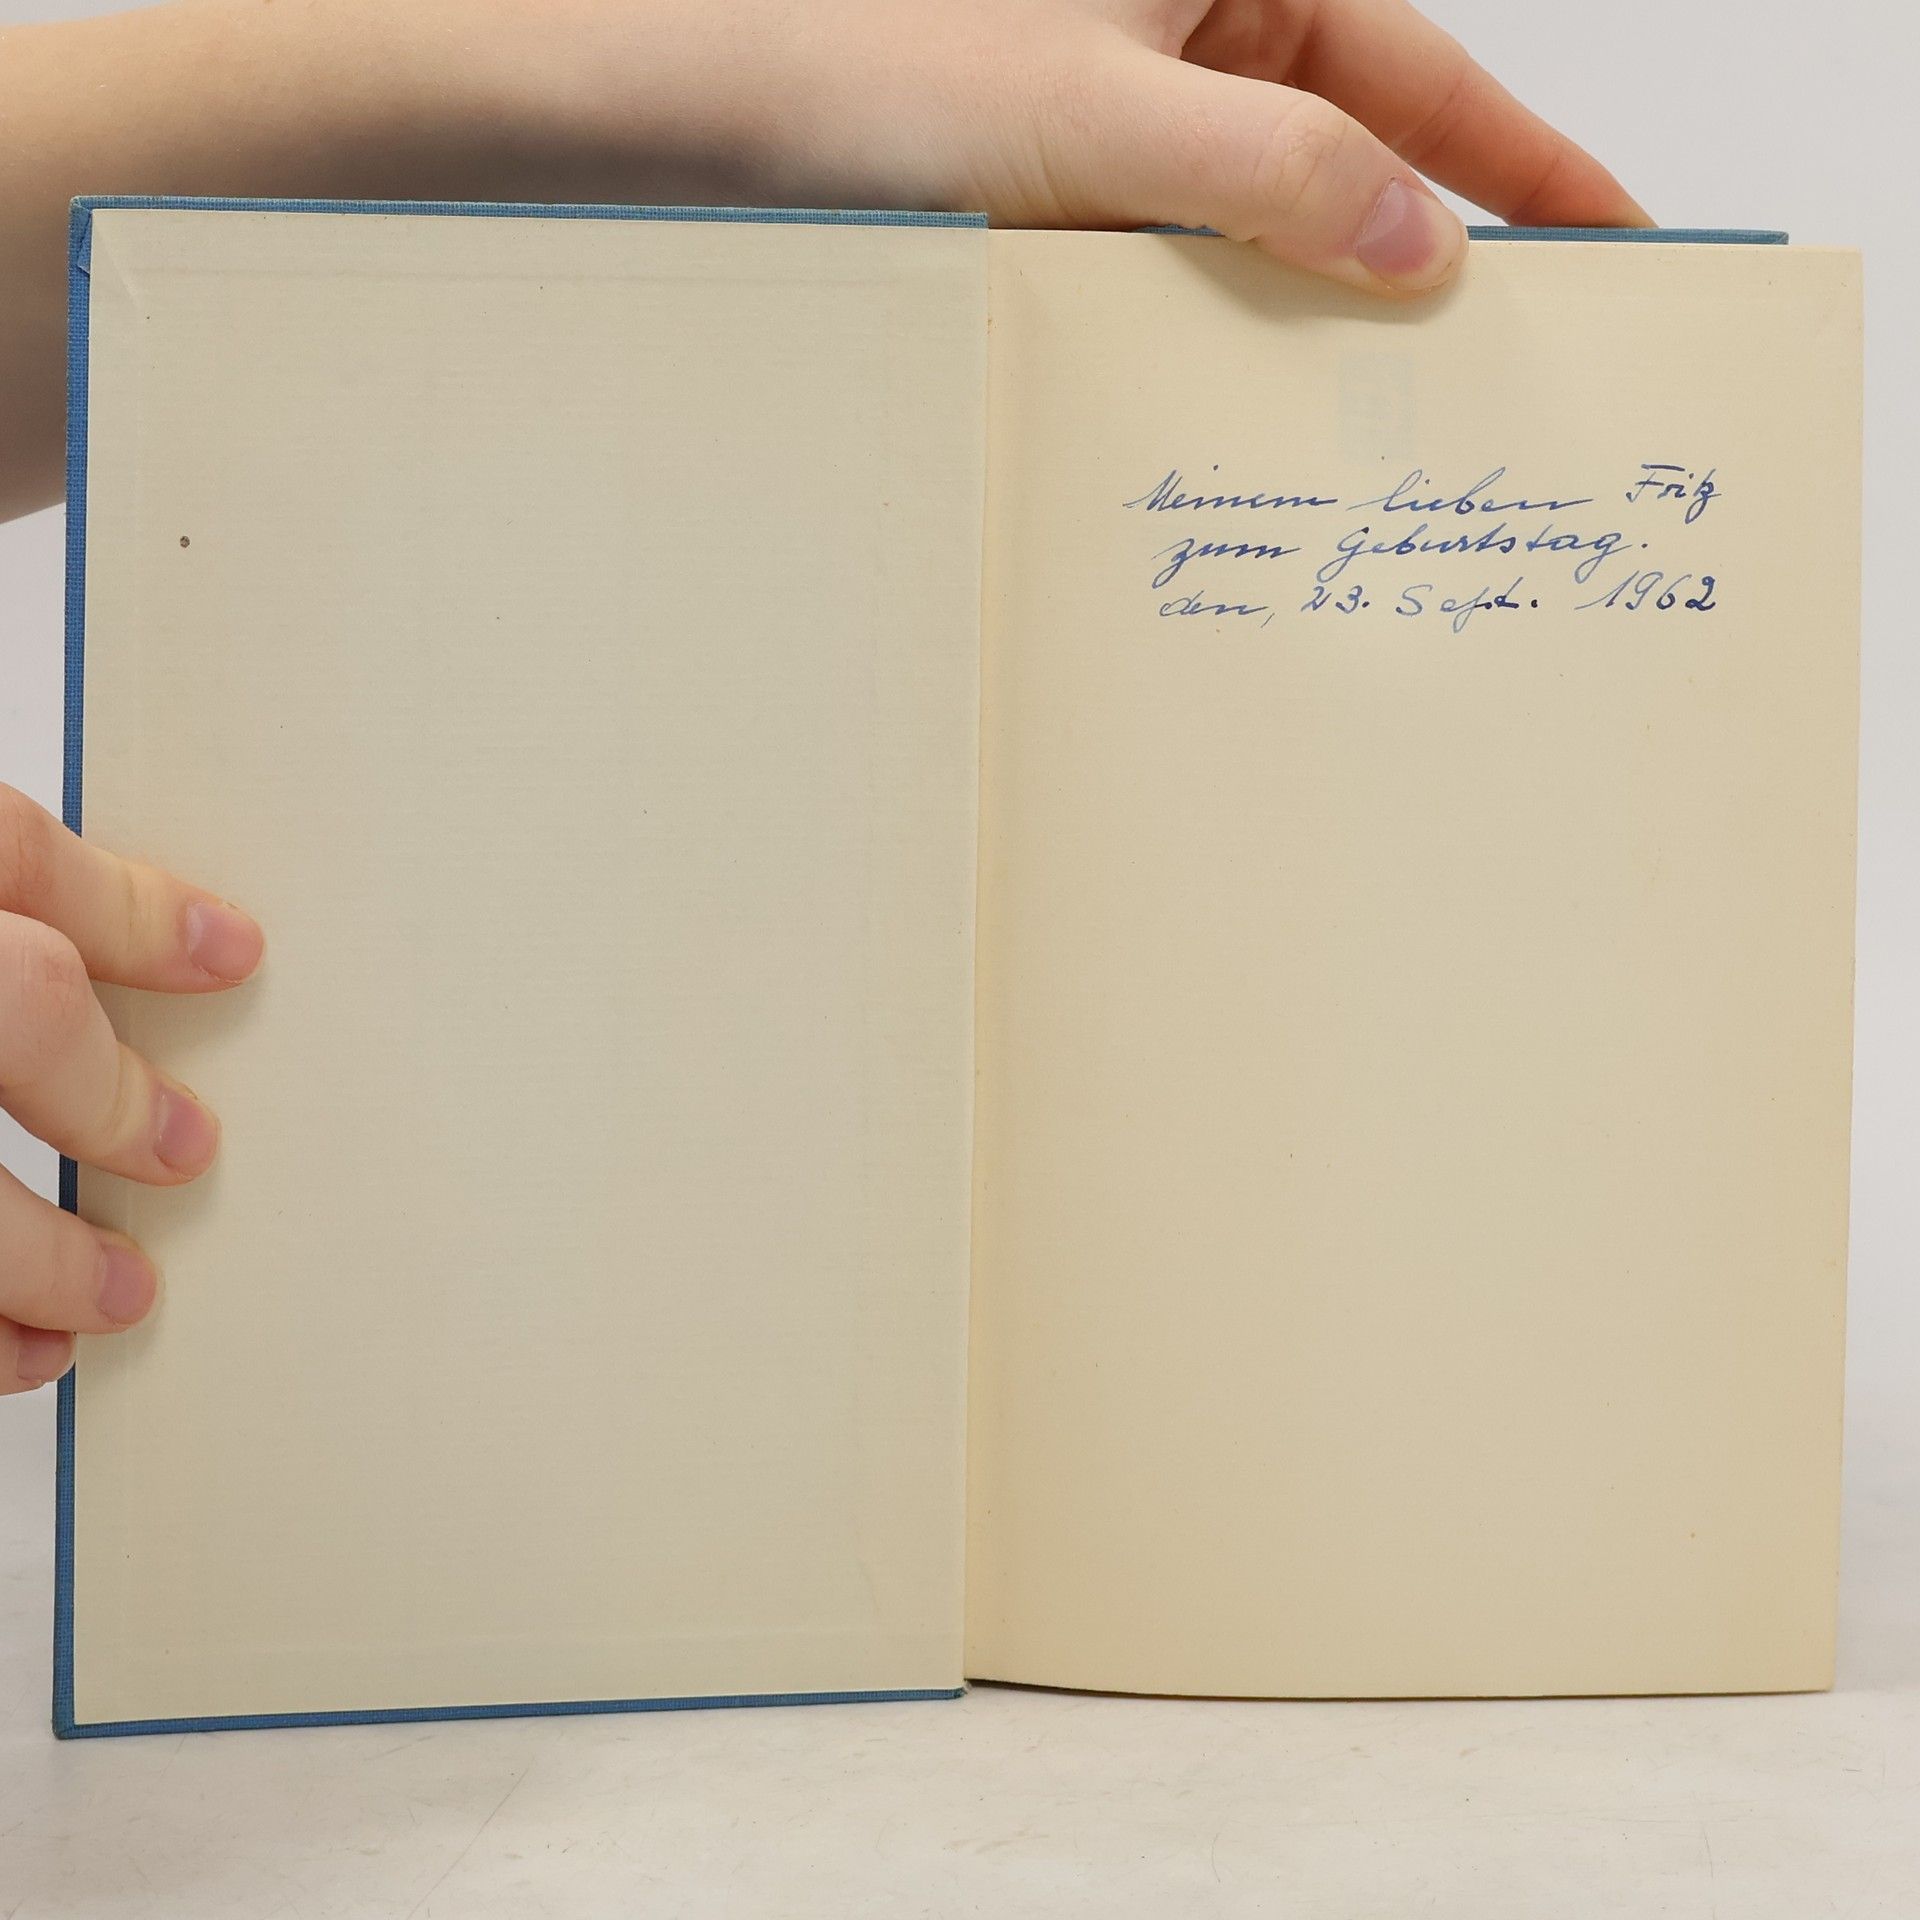 Meinem lieben Fritz
zum Geburtstag.
den, 23. Sept. 1962